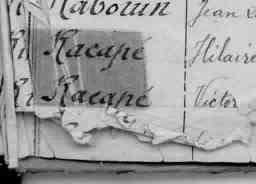 Rabourin Jean
Racapé Hilaire
Racapé Victor